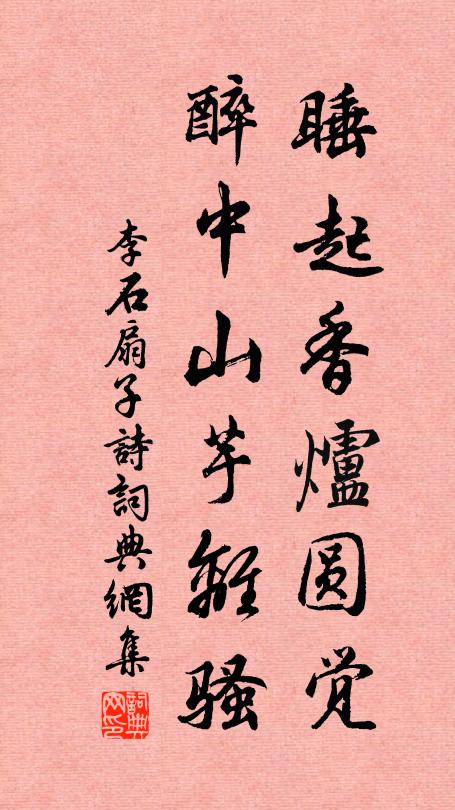 睡起香爐圆觉
醉中山芋離骚
李石扇子詩詞典網集
詞典网印